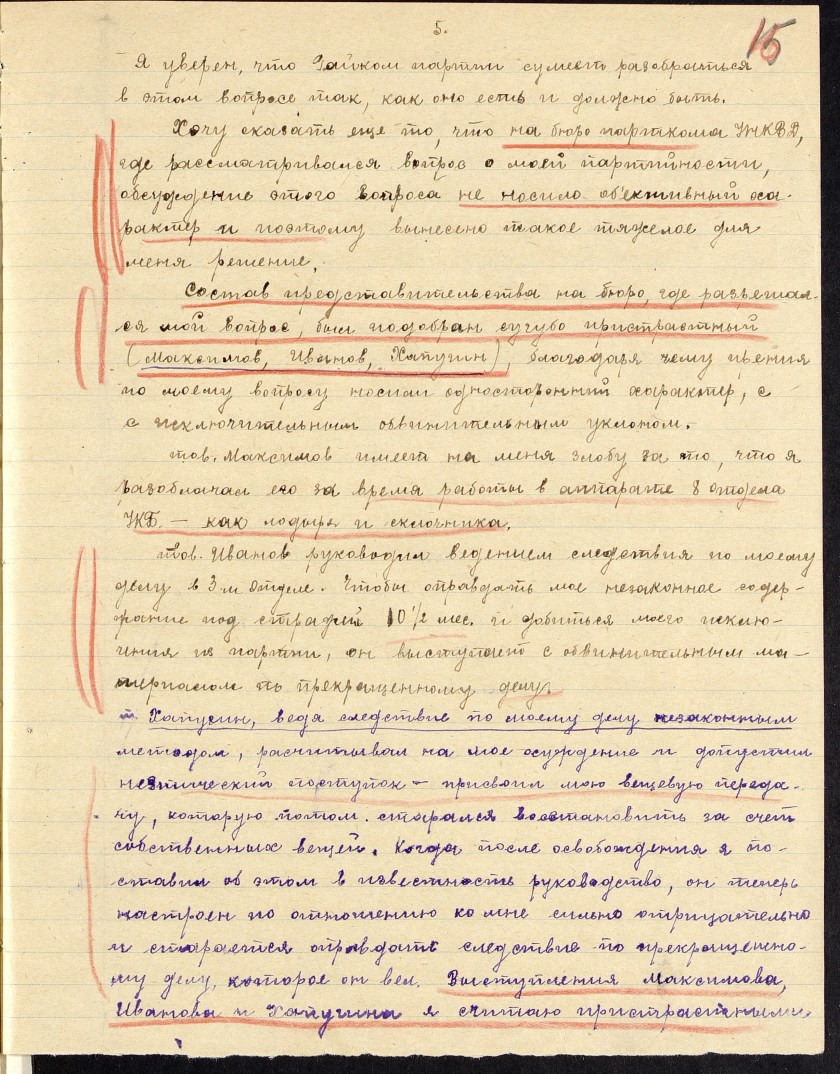 5.
15
Я уверен, что Райком партии сумеет разобраться
в этом вопросе так, как оно есть и должно быть.
Хочу сказать еще то, что на бюро парткома УНКВД,
где рассматривался вопрос о моей партийности,
обсуждение этого вопроса не носило об'ективный ха-
рактер и поэтому вынесено такое тяжелое для
меня решение.
Состав представительства на бюро, где разрешал-
ся мой вопрос, был подобран сугубо пристрастный
(Максимов, Иванов, Хапугин), благодаря чему прения
по моему вопросу носили односторонний характер, с
с исключительным обвинительным уклоном.
тов. Максимов имеет на меня злобу за то, что я
разоблачал его за время работы в аппарате 8 отдела
УГБ. – как лодыря и склочника.
тов. Иванов руководил ведением следствия по моему
делу в 3-м отделе. Чтобы оправдать мое незаконное содер-
жание под стражей 10 1/2 мес. и добиться моего исклю-
чения из партии, он выступает с обвинительным ма-
териалом по прекращенному делу.
т. Хапугин, ведя следствие по моему делу незаконным
методом, расчитывал на мое осуждение и допустил
неэтический поступок – присвоил мою вещевую переда-
чу, которую потом старался восстановить за счет
собственных вещей. Когда после освобождения я по-
ставил об этом в известность руководство, он теперь
настроен по отношению ко мне сильно отрицательно
и старается оправдать следствие по прекращенно-
му делу, которое он вел. Выступления Максимова,
Иванова и Хапугина я считаю пристрастными.